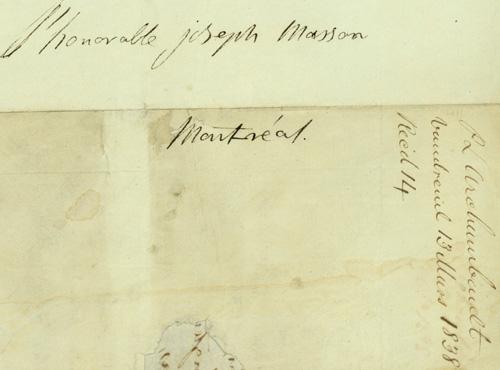 L'honorable joseph Masson
Montréal.
P L Archambault
Vaudreuil 13 Mars 1838
Rec'd 14